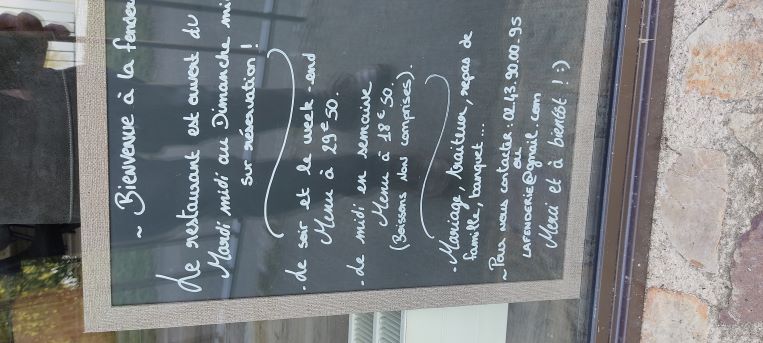 ~ Bienvenue à la fender
Le restaurant est ouvert du
Mardi midi au Dimanche mi
sur réservation !
- Le soir et le week-end
Menu à 29€50.
- Le midi en semaine
Menu à 18€50.
(Boissons NON comprises).
- Mariage, traiteur, repas de
famille, banquet...
~ Pour nous contacter : 02.43.90.00.95
ou
LAFENDERIE@gmail.com
Merci et à bientôt ! :)